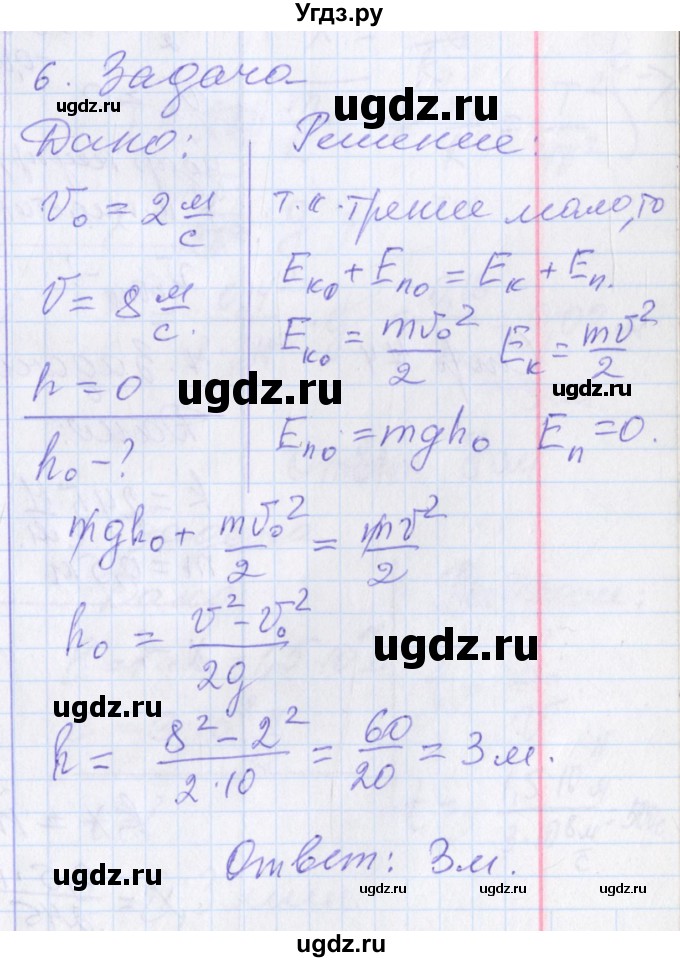 Угдз.ру
6. Задача
ugdz.ru
ugdz.ru
Дано:
Решение:
v₀ = 2 м/с
ugdz.ru
т.к. трение мало, то
Eк₀ + Eп₀ = Eк + Eп.
v = 8 м/с.
Eк₀ = mv₀²/2 Eк = mv²/2
h = 0
ugdz.ru
ugdz.ru
Eп₀ = mgh₀ Eп = 0.
h₀ - ?
mgh₀ + mv₀²/2 = mv²/2
ugdz.ru
h₀ = (v² - v₀²)/2g
ugdz.ru
ugdz.ru
h = (8² - 2²)/(2·10) = 60/20 = 3 м.
Ответ: 3 м.
ugdz.ru
ugdz.ru
ugdz.ru
ugdz.ru